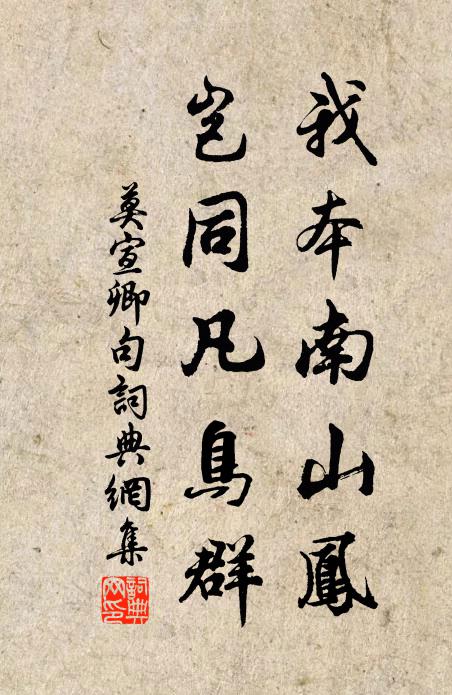 我本南山鳳
豈同凡鳥群
莫宣卿句詞典網集
詞典
网印